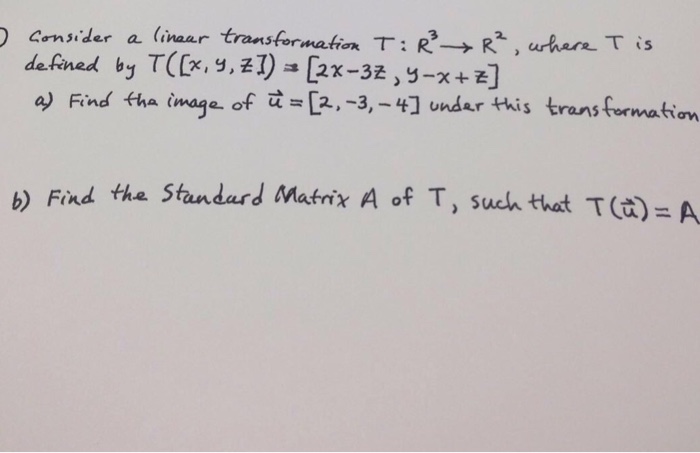 ) Consider a linear transformation T: R³ → R², where T is
defined by T([x, y, z]) = [2x-3z, y-x+z]
a) Find the image of u⃗ = [2, -3, -4] under this transformation
b) Find the Standard Matrix A of T, such that T(u⃗) = A